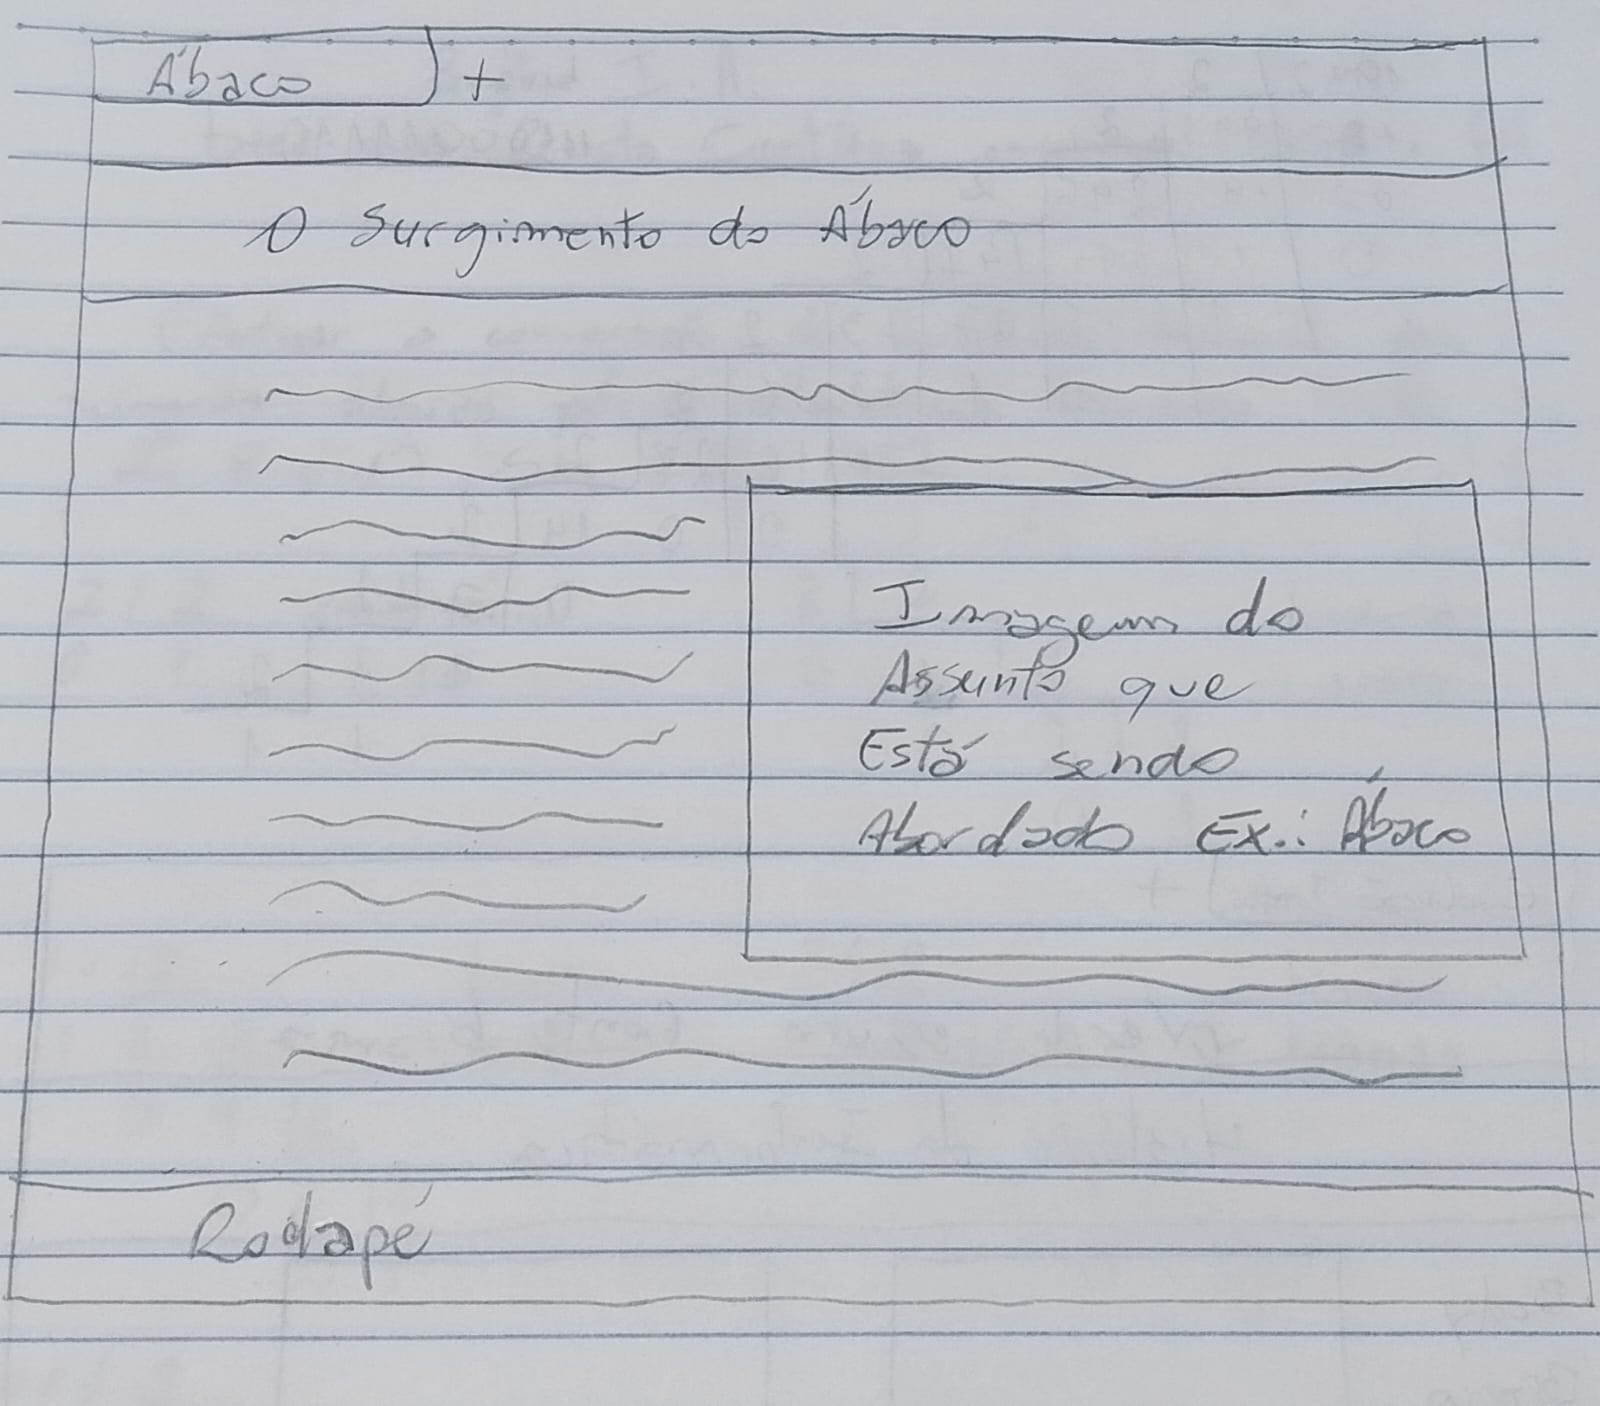 Ábaco +
O Surgimento do Ábaco
Imagem do
Assunto que
Está sendo
Abordado Ex.: Ábaco
Rodapé